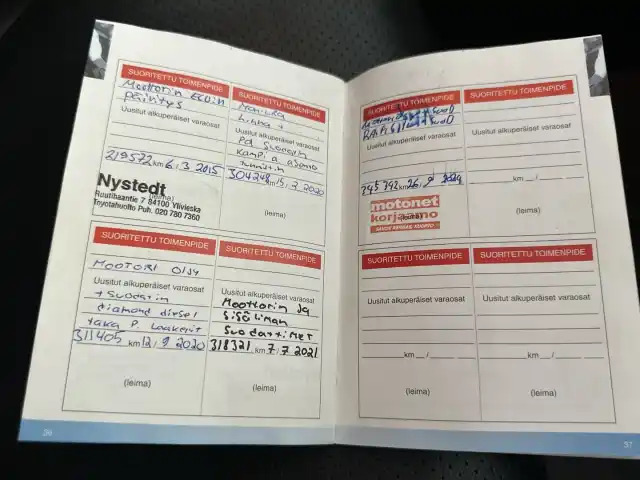 SUORITETTU TOIMENPIDE
Moottorin ECU:n
päivitys
Uusitut alkuperäiset varaosat
219572 km 6. 3 2015
Nystedt
(leima)
Ruutihaantie 7 84100 Ylivieska
Toyotahuolto Puh. 020 780 7360
SUORITETTU TOIMENPIDE
Uusitut alkuperäiset varaosat
Pa Suodatin
Kampi.a asento
tunnistin
304248 km 2 2020
(leima)
SUORITETTU TOIMENPIDE
MOOTORI Öljy
Uusitut alkuperäiset varaosat
+ Suodatin
diamond diesel
taka P. Laakerit
311405 km 12. 9 2020
(leima)
SUORITETTU TOIMENPIDE
Uusitut alkuperäiset varaosat
Moottorin Ja
Sisäilman
Suodattimet
318321 km 7. 7 2021
(leima)
56
SUORITETTU TOIMENPIDE
Uusitut alkuperäiset varaosat
km 26. 9
motonet
korjaamo
(leima)
SUORITETTU TOIMENPIDE
Uusitut alkuperäiset varaosat
km /
(leima)
SUORITETTU TOIMENPIDE
Uusitut alkuperäiset varaosat
km /
(leima)
SUORITETTU TOIMENPIDE
Uusitut alkuperäiset varaosat
km /
(leima)
57